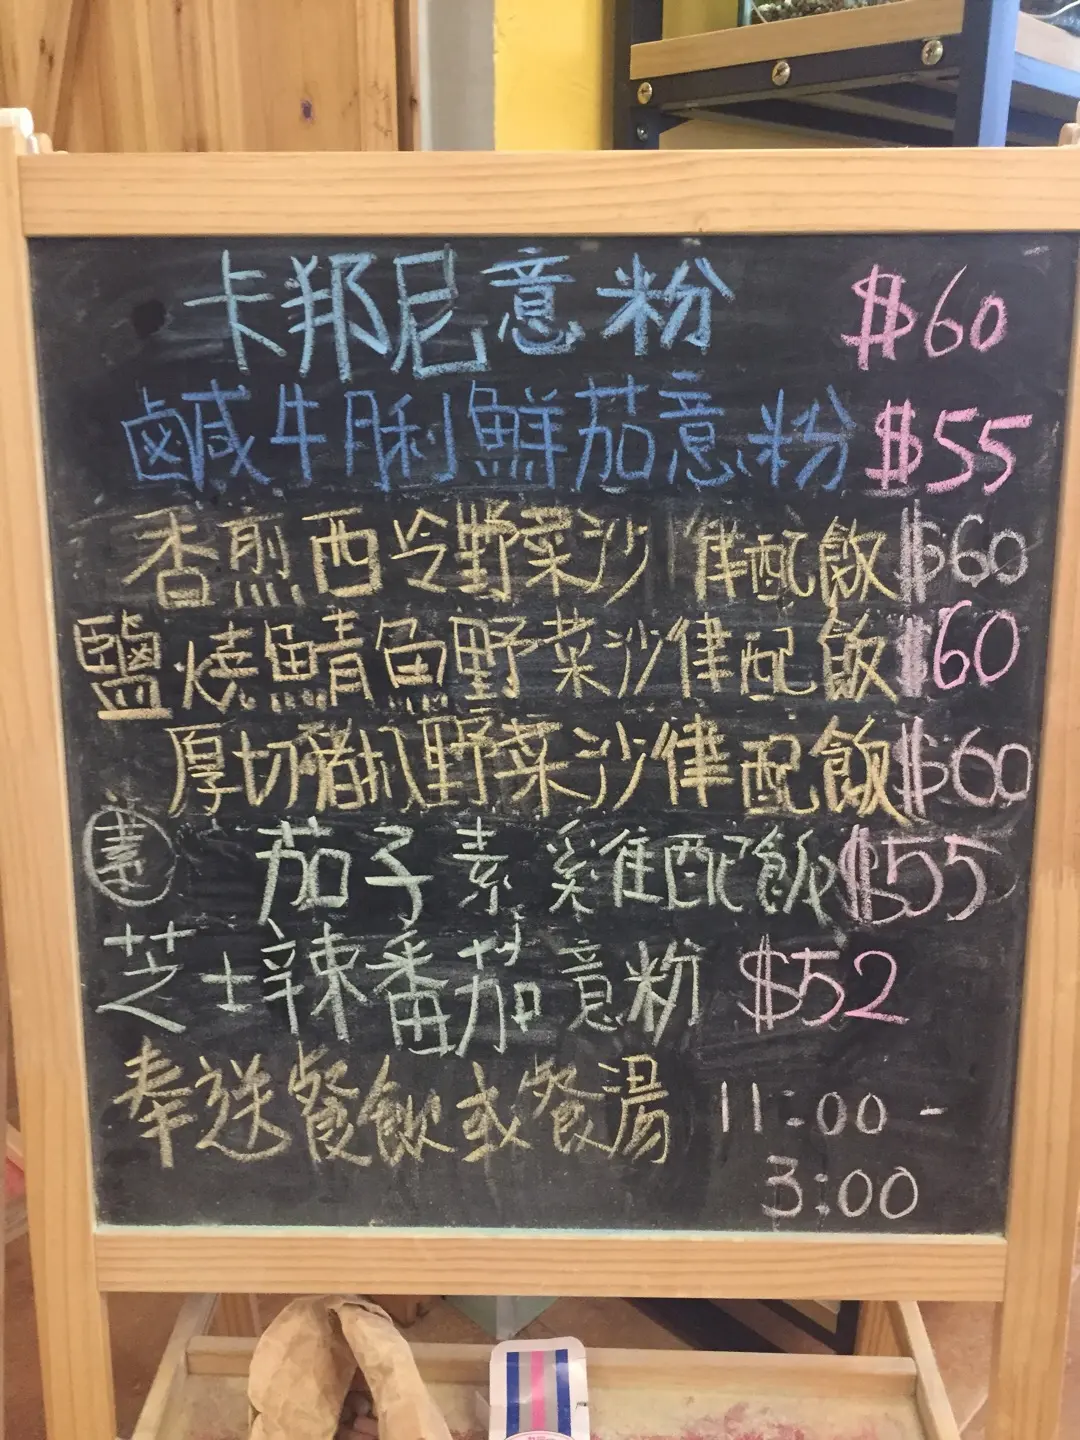 卡邦尼意粉 $60
鹹牛脷鮮茄意粉 $55
香煎西冷野菜沙律配飯 $60
鹽燒鯖魚野菜沙律配飯 $60
厚切豬扒野菜沙律配飯 $60
素 茄子素雞配飯 $55
芝士辣番茄意粉 $52
奉送餐飲或餐湯 11:00 -
3:00